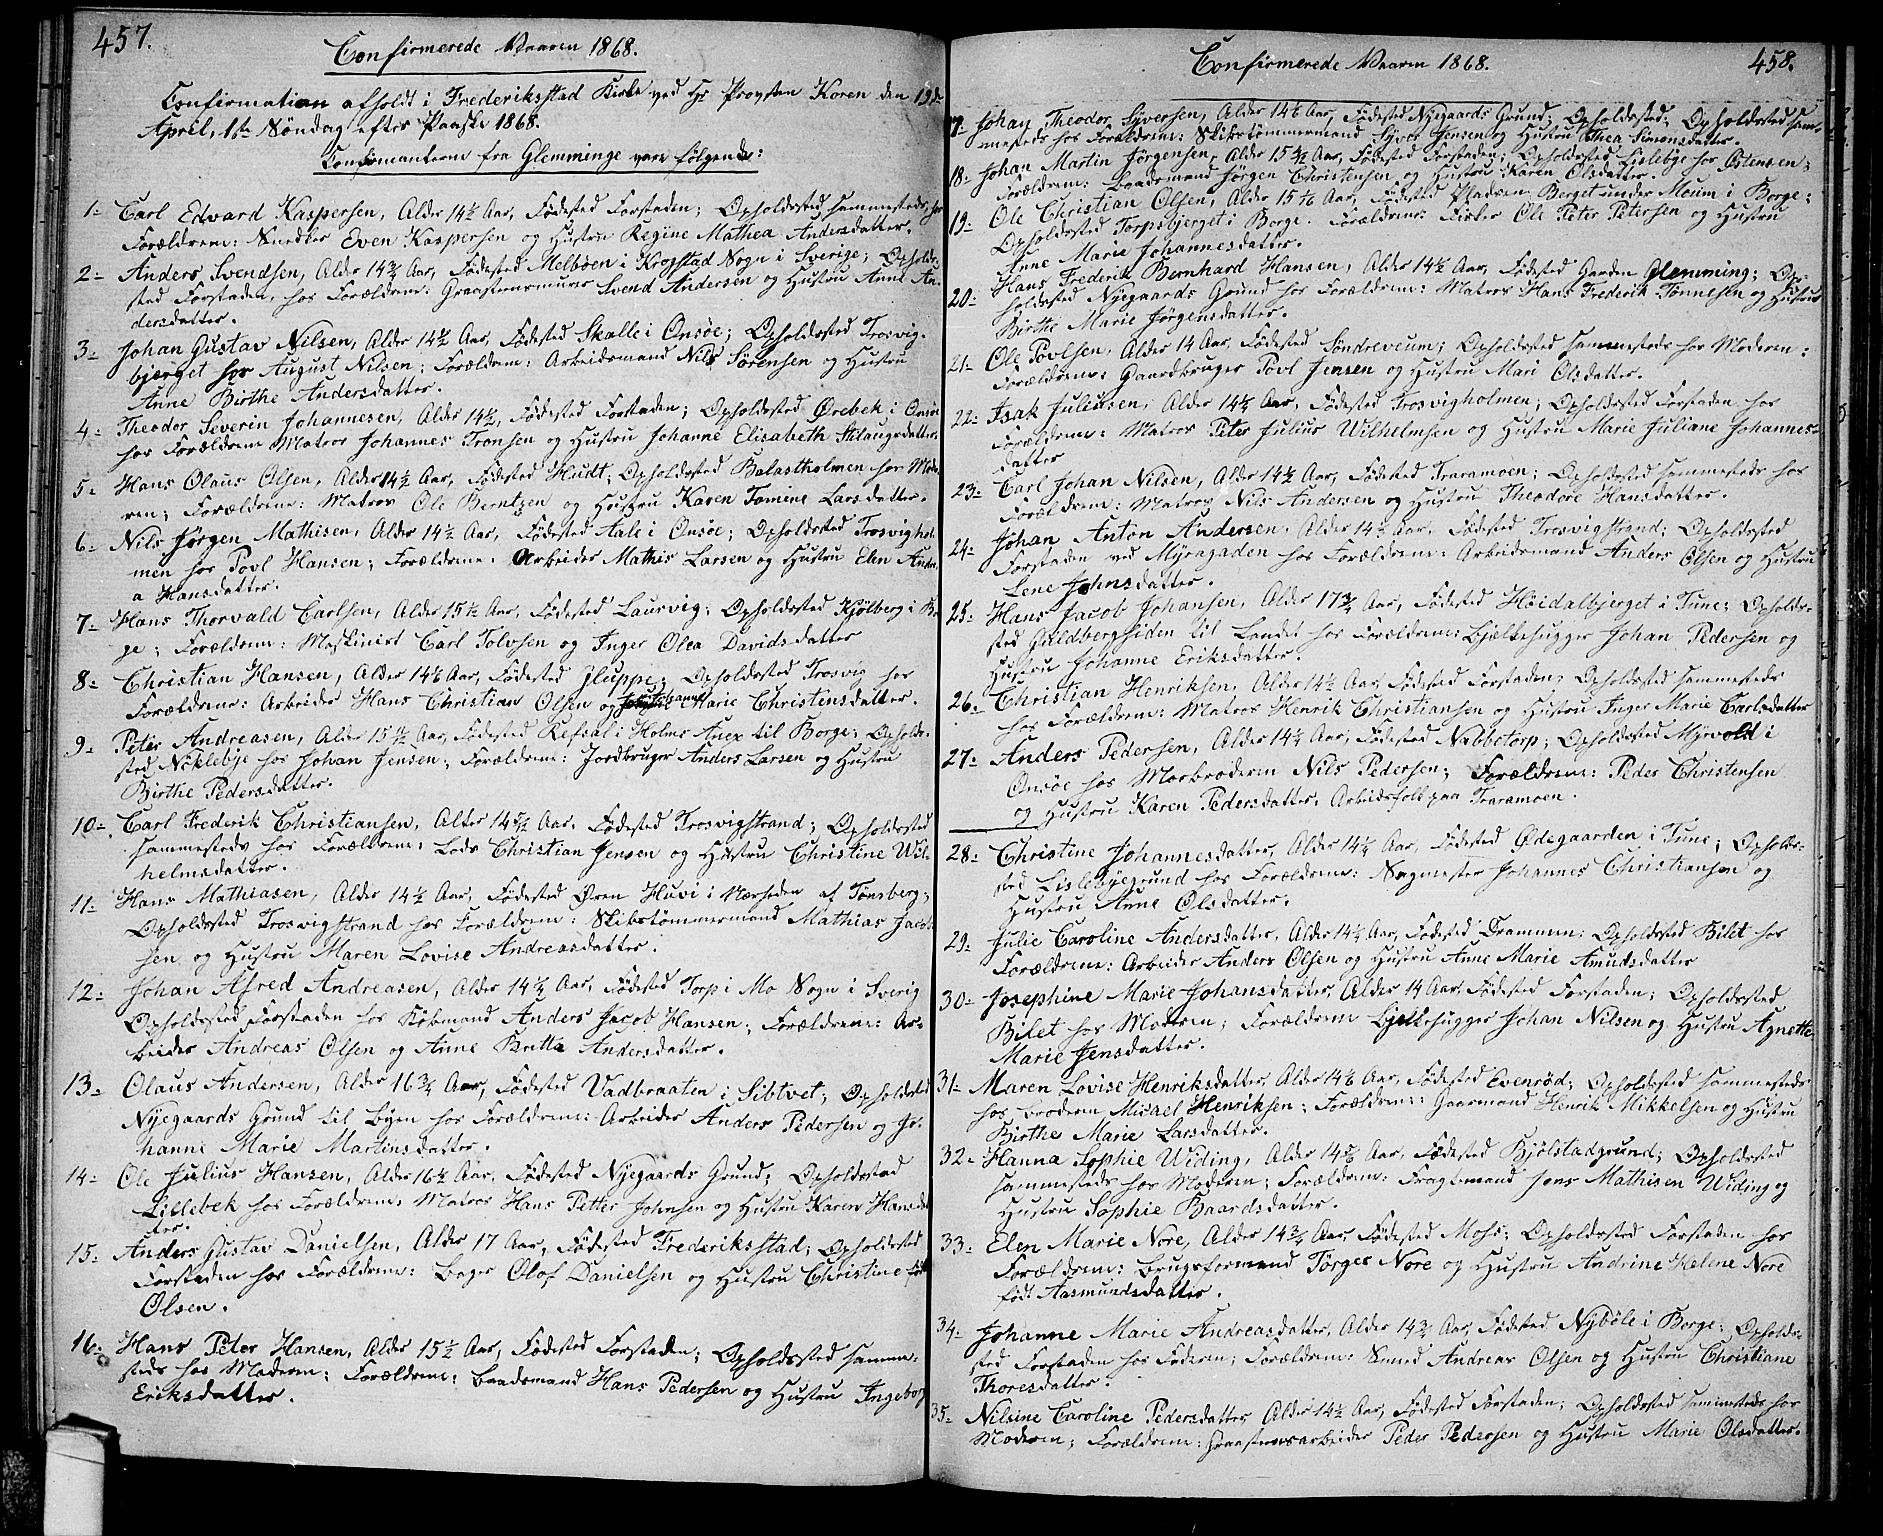 457.
Confirmerede Vaaren 1868.
Confirmation afholdt i Frederiksstad Kirke ved Hr Provsten Koren den 19de
April, 1ste Søndag efter Paaske 1868.
Confirmanterne fra Glemminge vare følgende:
1- Carl Edvard Kaspersen, Alder 14½ Aar, Fødested Forstaden; Opholdsted sammesteds hos
Forældrene: Snedker Even Kaspersen og Hustru Regine Mathea Andersdatter.
2- Anders Svendsen, Alder 14¾ Aar, Fødested Melbøen i Kropstad Sogn i Sverige; Opholds-
sted Forstaden, hos Forældrene: Graastensmurer Svend Andersen og Hustru Anne An-
dersdatter.
3- Johan Gustav Nilsen, Alder 14 Aar, Fødested Skalle i Onsøe; Opholdsted Trosvig-
bjerget hos August Nilsen; Forældrene: Arbeidsmand Nils Sørensen og Hustru
Anne Birthe Andersdatter.
4- Theodor Severin Johannesen, Alder 14½, Fødested Forstaden; Opholdsted Ørebek i Onsøe
hos Forældrene Matros Johannes Tronsen og Hustru Johanne Elisabeth Aslaugsdatter.
5- Hans Olaus Olsen, Alder 14½ Aar, Fødested Hudt; Opholdsted Balastholmen hos Mode-
ren; Forældrene: Matros Ole Berntzen og Hustru Karen Tomine Larsdatter.
6- Nils Jørgen Mathisen, Alder 14½ Aar, Fødested Aale i Onsøe; Opholdsted Trosvighol-
men hos Povl Hansen; Forældrene: Arbeider Mathis Larsen og Hustru Elen Andre-
a Hansdatter.
7- Hans Thorvald Carlsen, Alder 15 Aar, Fødested Laurvig; Opholdsted Kjølberg i Bor-
ge; Forældrene: Maskinist Carl Tolvsen og Inger Olea Davidsdatter
8- Christian Hansen, Alder 14 Aar, Fødested Gluppe; Opholdsted Trosvig hos
Forældrene: Arbeider Hans Christian Olsen og Johanne Marie Christensdatter.
9- Peter Andreasen, Alder 15 Aar, Fødested Refsal i Holms Anex til Borge; Opholds-
sted Neklebye hos Johan Jensen; Forældrene: Jordbruger Anders Larsen og Hustru
Birthe Pedersdatter.
10- Carl Frederik Christiansen, Alter 14 Aar, Fødested Trosvigstrand; Opholdsted
sammesteds hos Forældrene: Lods Christian Jensen og Hustru Christine Wil-
helmsdatter.
11- Hans Mathiasen, Alder 14½ Aar, Fødested Øren Huvi i Nærheden af Tønsberg;
Opholdsted Trosvigstrand hos Forældrene: Skibstømmermand Mathias Jacob-
sen og Hustru Maren Lovise Andreasdatter.
12- Johan Alfred Andreasen, Alder 14 Aar, Fødested Torp i Mo Sogn i Sverig
Opholdsted Forstaden hos Kjøbmand Anders Jacob Hansen; Forældrene: Ar-
beider Andreas Olsen og Anne Britta Andersdatter.
13- Olaus Andersen, Alder 16¾ Aar, Fødested Vadbraaten i Sibtvet; Opholdsted
Nyegaards Grund til Byen hos Forældrene: Arbeider Anders Pedersen og Jo-
hanne Marie Martinsdatter.
14- Ole Julius Hansen, Alder 16½ Aar, Fødested Nyegaards Grund; Opholdsted
Lillebek hos Forældrene, Matros Hans Petter Johnsen og Hustru Karen Hansdat-
ter.
15- Anders Gustav Danielsen, Alder 17 Aar, Fødested Frederiksstad; Opholdsted
Forstaden hos Forældrene: Bager Olof Danielsen og Hustru Christine født
Olsen.
16- Hans Peter Hansen, Alder 15½ Aar, Fødested Forstaden; Opholdsted samme-
steds hos Moderen; Forældrene: Baadsmand Hans Pedersen og Hustru Ingeborg
Eriksdatter.
458.
Confirmerede Vaaren 1868.
17- Johan Theodor Syversen, Alder 14 Aar, Fødested Nyegaards Grund; Opholdsted; Opholdsted sam-
mesteds hos Forældrene: Skibstømmermand Syver Jensen og Hustru Thea Simonsdatter.
18- Johan Martin Jørgensen, Alder 15 Aar, Fødested Forstaden; Opholdsted Lislebye hos Østensen;
Forældrene: Baadsmand Jørgen Christensen og Hustru Karen Olsdatter.
19- Ole Christian Olsen, Alder 15 Aar, Fødested Pladsen Berget under Moum i Borge;
Opholdsted Torpebjerget i Borge. Forældrene: Fisker Ole Peter Petersen og Hustru
Anne Marie Johannesdatter.
20- Hans Frederik Bernhard Hansen, Alder 14½ Aar, Fødested Gaarden Glemming; Op-
holdsted Nyegaards Grund hos Forældrene: Matros Hans Frederik Tønnesen og Hustru
Birthe Marie Jørgensdatter.
21- Ole Povlsen, Alder 14 Aar, Fødested Søndreveum; Opholdsted sammesteds hos Moderen;
Forældrene: Gaardbruger Povl Jensen og Hustru Mari Olsdatter.
22- Isak Juliusen, Alder 14 Aar, Fødested Trosvigholmen; Opholdsted Forstaden hos
Forældrene: Matros Peter Julius Wilhelmsen og Hustru Marie Juliane Johannes-
datter
23- Carl Johan Nilsen, Alder 14½ Aar, Fødested Traramoen; Opholdsted sammesteds hos
Forældrene: Matros Nils Andersen og Hustru Theodore Hansdatter.
24- Johan Anton Andersen, Alder 14 Aar, Fødested Trosvigstrand; Opholdsted
Forstaden ved Myragaden hos Forældrene: Arbeidsmand Anders Olsen og Hustru
Lene Johnsdatter.
25- Hans Jacob Johansen, Alder 17¾ Aar, Fødested Høidalbjerget i Tune; Opholds-
sted Guldbergsiden til Landet hos Forældrene: Bjelkehugger Johan Pedersen og
Hustru Johanne Eriksdatter.
26- Christian Henriksen, Alder 14½ Aar, Fødested Forstaden; Opholdsted sammesteds
hos Forældrene: Matros Henrik Christiansen og Hustru Inger Marie Carlsdatter
27- Anders Pedersen, Alder 14 Aar, Fødested Nabbetorp; Opholdsted Myrvold i
Onsøe hos Morbroderen Nils Pedersen; Forældrene: Peder Christensen
og Hustru Karen Pedersdatter, Arbeidsfolk paa Traramoen.
28- Christine Johannesdatter, Alder 14 Aar, Fødested Ødegaarden i Tune; Opholds-
sted Lislebyegrund hos Forældrene: Sagmester Johannes Christiansen og
Hustru Anne Olsdatter.
29- Julie Caroline Andersdatter, Alder 14 Aar, Fødested Drammen; Opholdsted Bilet hos
Forældrene: Arbeider Anders Olsen og Hustru Anne Marie Amundsdatter
30- Josephine Marie Johansdatter, Alder 14 Aar, Fødested Forstaden; Opholdsted
Bilet hos Moderen; Forældrene Bjelkehugger Johan Nilsen og Hustru Agnette
Marie Jensdatter.
31- Maren Lovise Henriksdatter, Alder 14 Aar, Fødested Evenrød; Opholdsted sammesteds
hos Broderen Micael Henriksen; Forældrene: Gaarmand Henrik Mikkelsen og Hustru
Birthe Marie Larsdatter.
32- Hanna Sophie Widing, Alder 14 Aar, Fødested Kjølstadgrund; Opholdsted
sammesteds hos Moderen; Forældrene: Fragtemand Jens Mathisen Widing og
Hustru Sophie Baardsdatter.
33- Elen Marie Nore, Alder 14¾ Aar, Fødested Mohs; Opholdsted Forstaden hos
Forældrene: Brugsformand Tørger Nore og Hustru Andrine Helene Nore
født Aasmundsdatter.
34- Johanne Marie Andreasdatter, Alder 14¾ Aar, Fødested Nybøle i Borge; Opholds-
sted Forstaden hos Faderen; Forældrene: Smed Andreas Olsen og Hustru Christiane
Thoresdatter.
35- Nilsine Caroline Pedersdatter, Alder 14½ Aar, Fødested Forstaden; Opholdsted sammesteds hos
Moderen; Forældrene: Graastensarbeider Peder Pedersen og Hustru Marie Olsdatter.